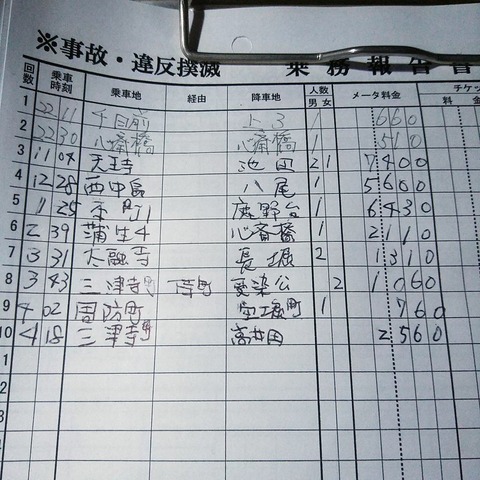 ※事故・違反撲滅 乗務報告書
回数 乗車時刻 乗車地 経由 降車地 人数 男 女 メータ料金 チケッ 料 金
1 22 11 千日前 上3 1 660
2 22 30 心斎橋 心斎橋 1 510
3 11 04 天王寺 池田 2 1 7400
4 12 28 西中島 八尾 1 5600
5 1 25 本町1 鹿野台 1 6430
6 2 39 蒲生4 心斎橋 1 2110
7 3 31 太融寺 長堀 2 1310
8 3 43 三津寺町 愛染公 2 1060
9 4 02 周防町 空堀町 1 760
10 4 18 三津寺町 高井田 2560
1
2
3
4